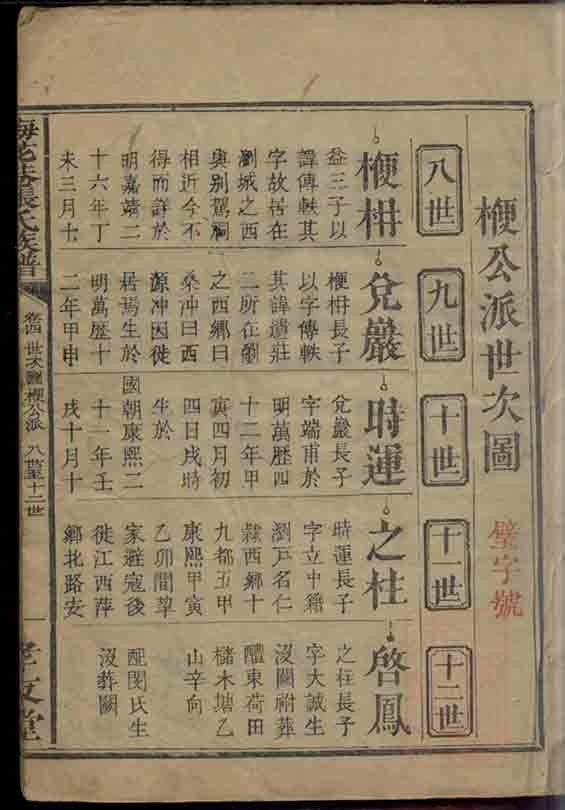 楩公派世次圖
璧字號
八世
九世
十世
十一世
十二世
楩柟
益三子以
諱傳軼其
字故居在
瀏城之西
與别駕祠
相近今不
得而詳於
明嘉靖二
十六年丁
未三月十
兌巖
楩柟長子
以字傳軼
其諱遺莊
二所在瀏
之西鄉曰
桑沖曰西
源沖因徙
居焉生於
明萬歷十
二年甲申
時運
兌巖長子
字端甫於
明萬歷四
十二年甲
寅四月初
四日戌時
生於
國朝康熙二
十一年壬
戌十月十
之柱
時運長子
字立中籍
瀏戸名仁
隸西鄉十
九都五甲
康熙甲寅
乙卯間草
家避寇後
徙江西萍
鄉北路安
啓鳳
之柱長子
字大誠生
沒闕祔葬
醴東荷田
櫧木塘乙
山辛向
配閔氏生
沒葬闕
張氏族譜
卷四 世次圖楩公派 八世至十二世
一
孝友堂